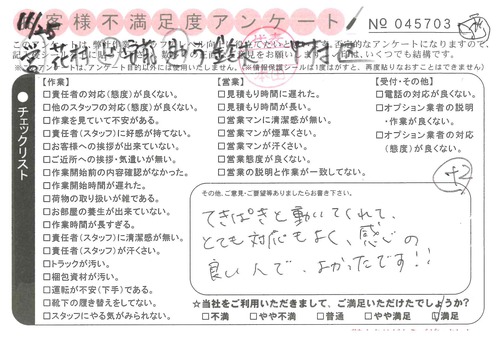 お客様不満足度アンケート
No 045703
11/25
チェックリスト
【作業】
□責任者の対応(態度)が良くない。
□他のスタッフの対応(態度)が良くない。
□作業を見ていて不安がある。
□責任者(スタッフ)に好感が持てない。
□お客様への挨拶が出来ていない。
□ご近所への挨拶・気遣いが無い。
□作業開始前の内容確認がなかった。
□作業開始時間が遅れた。
□荷物の取り扱いが雑である。
□お部屋の養生が出来ていない。
□作業時間が長すぎる。
□責任者(スタッフ)に清潔感が無い。
□責任者(スタッフ)が汗くさい。
□トラックが汚い。
□梱包資材が汚い。
□運転が不安(下手)である。
□靴下の履き替えをしてない。
□スタッフにやる気がみられない。
【営業】
□見積もり時間に遅れた。
□見積もり時間が長い。
□営業マンに清潔感が無い。
□営業マンが煙草くさい。
□営業マンが汗くさい。
□営業態度が良くない。
□営業の説明と作業が一致してない。
【受付・その他】
□電話の対応が良くない。
□オプション業者の説明
・作業が良くない。
□オプション業者の対応
(態度)が良くない。
+2
その他、ご意見・ご要望等ありましたらお書き下さい。
てきぱきと動いてくれて、
とても対応もよく、感じの
良い人で、よかったです!!
☆当社をご利用いただきまして、ご満足いただけたでしょうか?
□不満 □やや不満 □普通 □やや満足 □満足